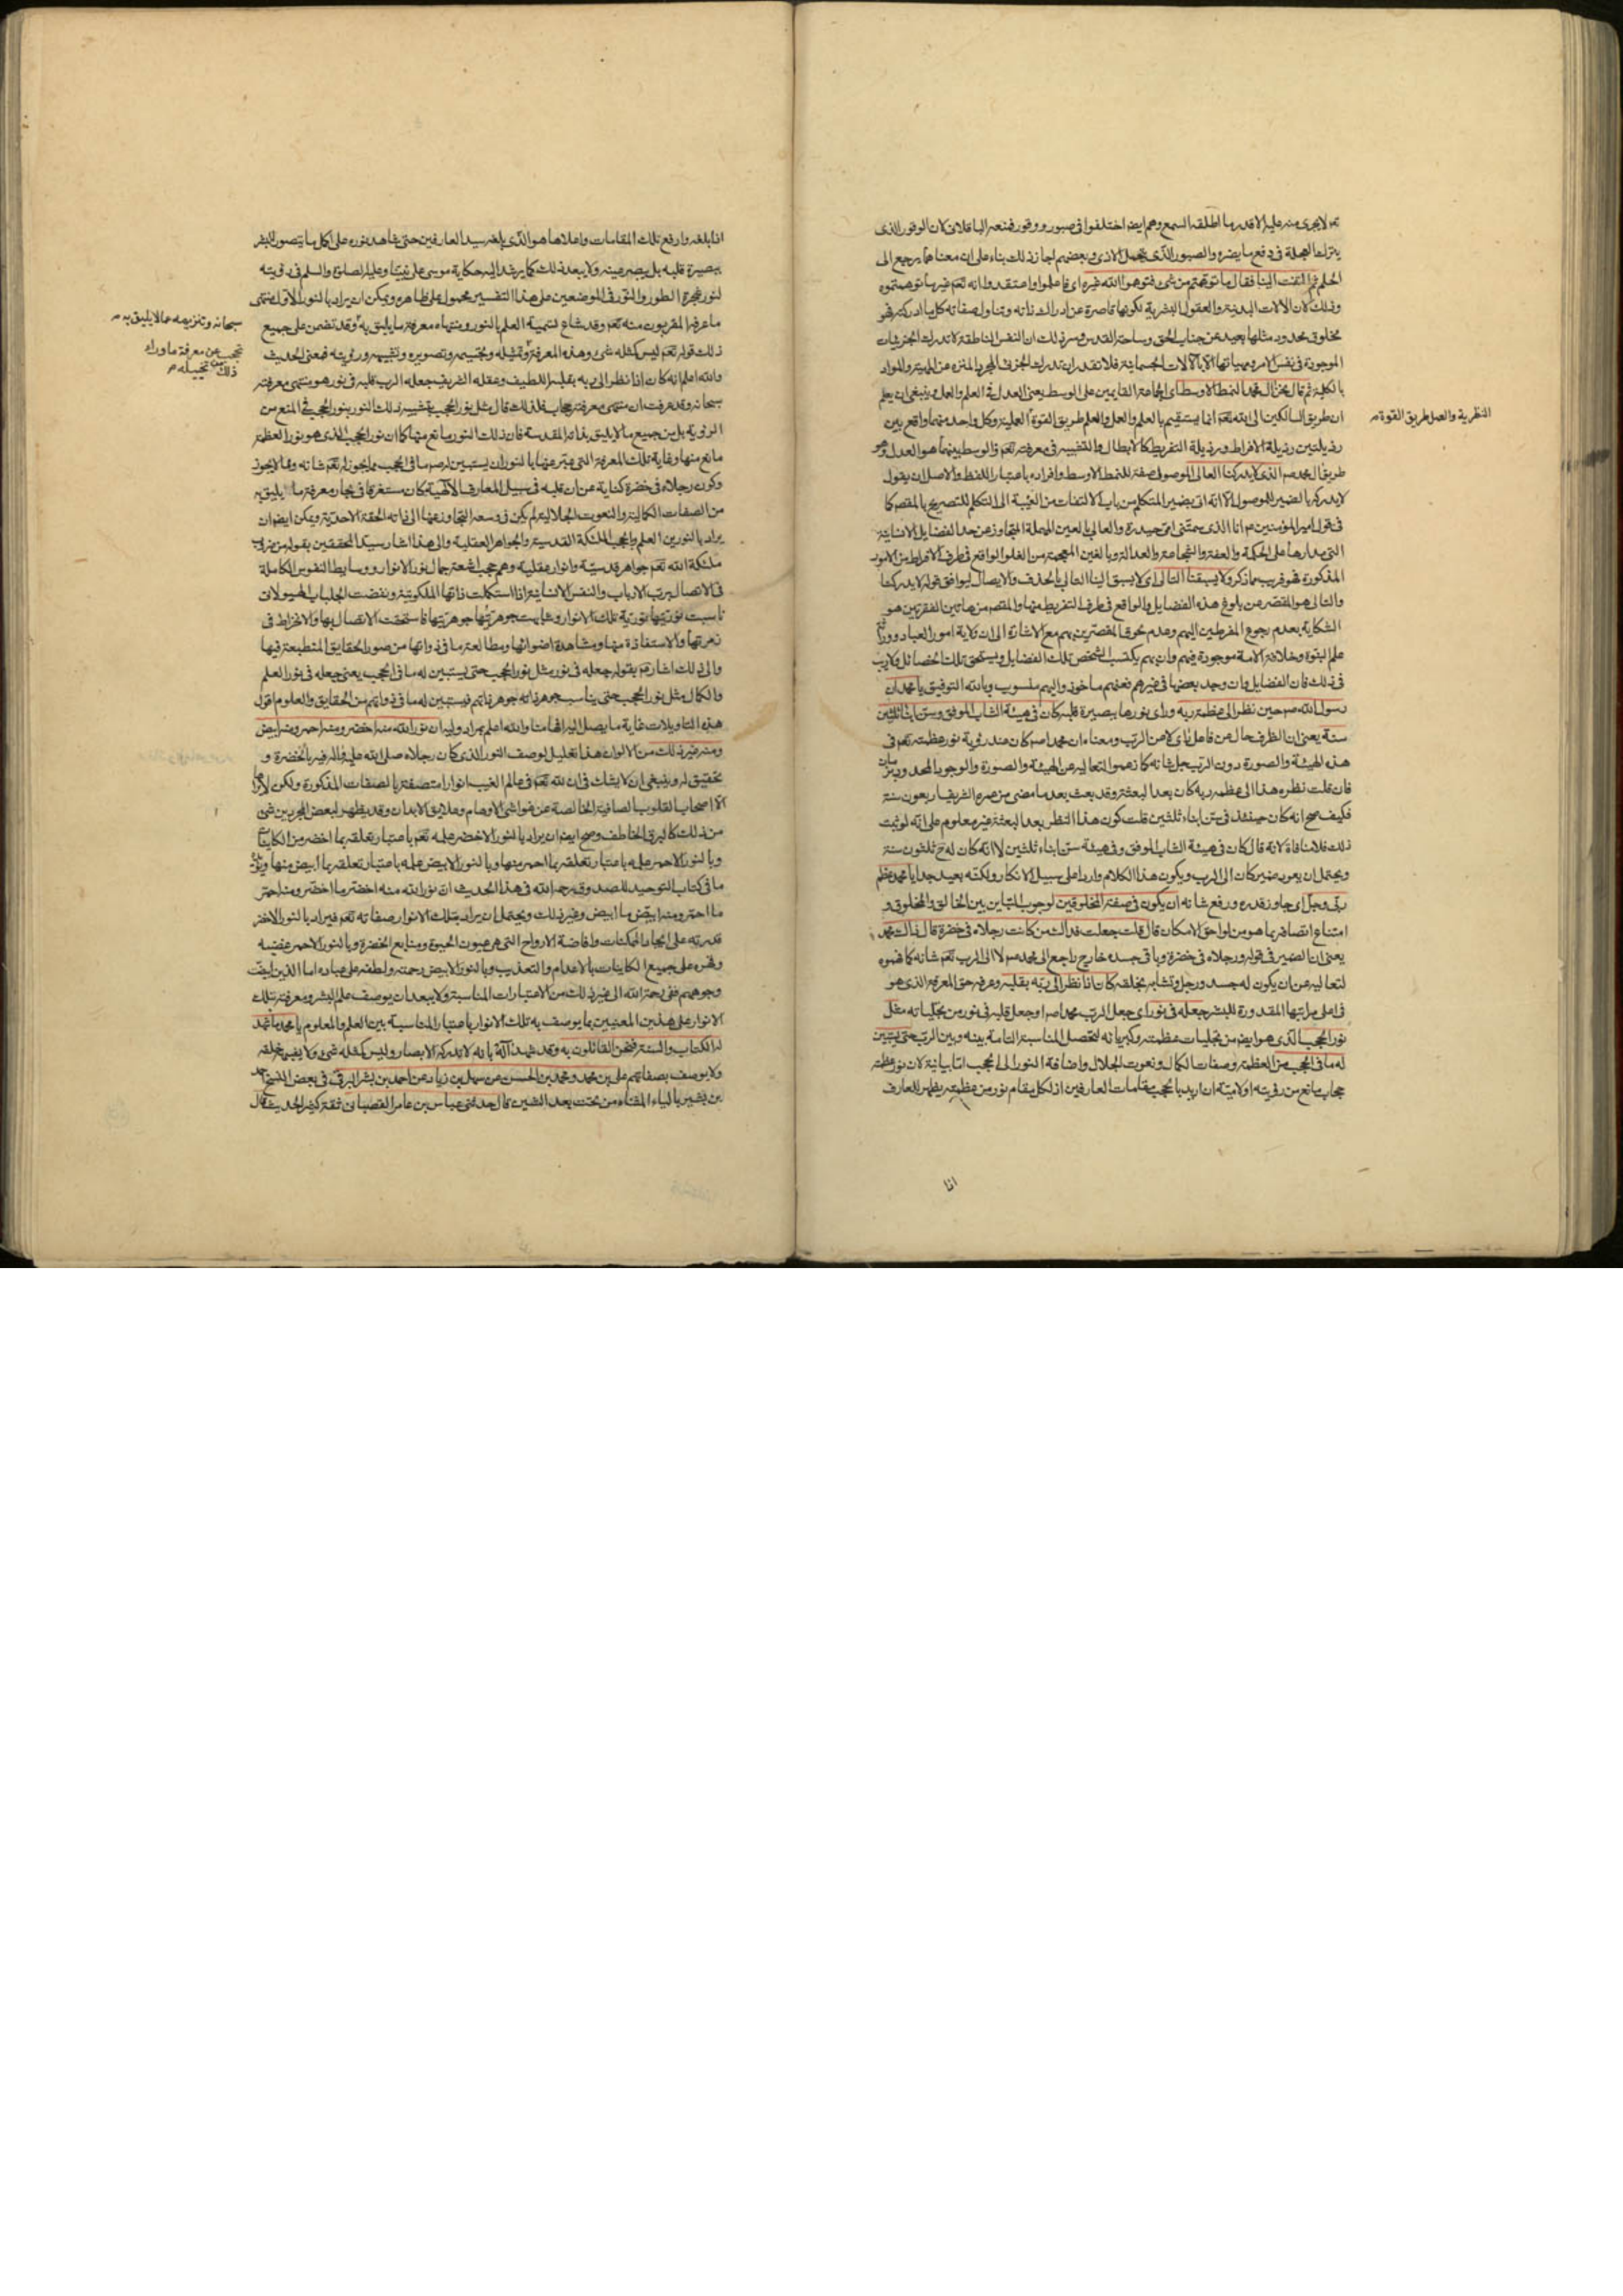 تعالى لا يجرى منه عليه الا قدر ما اطلقه السمع وهم ايضا اختلفوا فى صبور ووقور فمنعه الباقلانى لان الوقور الذى
يترك العجلة فى دفع ما يضره والصبور الذى يتحمل الاذى وبعضهم اجاز ذلك بناء على ان معناهما يرجع الى
الحلم ثم التفت الينا فقال ما توهمتم من شىء فتوهموا الله غيره اى فاعلموا واعتقدوا انه تعم غير ما توهمتموه
وذلك لان الالات البدنية والعقول البشرية لكونها قاصرة عن ادراك ذاته وتناول صفاته كل ما ادركته فهو
مخلوق محدود مثلها بعيد عن جناب الحق وساحة القدس وسر ذلك ان النفس الناطقة لا تدرك الجزئيات
الموجودة فى نفس الامر وهيئاتها الا بالالات الجسمانية فلا تقدر ان تدرك الجزئى المجرد المنزه عن الهيئة والمواد
بالكلية ثم قال نحن آل محمد النمط الاوسط اى الجماعة القايمين على الوسط يعنى العدل فى العلم والعمل وينبغى ان يعلم
ان طريق السالكين الى الله تعم انما يستقيم بالعلم والعمل والعلم طريق القوة العملية وكل واحد منهما واقع بين
النظرية والعمل طريق القوة
رذيلتين رذيلة الافراط ورذيلة التفريط كالابطال والتشبيه فى معرفته تعم والوسط بينهما هو العدل وهو
طريق آل محمد صم الذى لا يدركنا الغالى الموصول صفة للنمط الاوسط وافراده باعتبار اللفظ والاصل ان يقول
لا يدركه بالضمير للموصول الا انه اتى بضمير المتكلم من باب الالتفات من الغيبة الى التكلم للتصريح بالمقصود كما
فى قول امير المؤمنين ع م انا الذى سمتنى امى حيدرة والعالى بالعين المهملة المتجاوز عن حد الفضايل الانسانية
التى مدارها على الحكمة والعفة والشجاعة والعدالة وبالغين المعجمة من الغلو الواقع فى طرف الافراط من الامور
المذكورة فهو قريب مما ذكر ولا يسبقنا التالى اى لا يسبق الينا التالى بالحذف والايصال ليوافق قوله لا يدركنا
والتالى هو المقصر عن بلوغ هذه الفضايل والواقع فى طرف التفريط منها والمقصود من هاتين الفقرتين هو
الشكاية بعدم رجوع المفرطين اليهم وعدم لحوق المقصرين بهم مع الاشارة الى ان ولاية امور العباد ووراثة
علم النبوة وخلافة الامة موجودة فيهم وان بهم يكتسب الشخص تلك الفضايل ويستحق تلك الخصائل ولا ريب
فى ذلك فان الفضايل وان وجد بعضها فى غيرهم فعنهم ماخوذ واليهم منسوب وبالله التوفيق يا محمد ان
رسول الله صم حين نظر الى عظمة ربه وراى نورها ببصيرة قلبه كان فى هيئة الشاب الموفق وسن ابناء ثلثين
سنة يعنى ان الظرف حال عن فاعل راى لا من الرب ومعناه ان محمدا صم كان عند رؤية نور عظمته تعم فى
هذه الهيئة والصورة دون الرب جل شانه كما زعموا لتعاليه عن الهيئة والصورة والوجوب المحدود بزمان
فان قلت نظره هذا الى عظمة ربه كان بعد البعثة وقد بعث بعد ما مضى من عمره الشريف اربعون سنة
فكيف صح انه كان حينئذ فى سن ابناء ثلثين قلت كون هذا النظر بعد البعثة غير معلوم على انه لو ثبت
ذلك فلا منافاة لانه قال كان فى هيئة الشاب الموفق وفى هيئة سن ابناء ثلثين لا انه كان له ح ثلثون سنة
ويحتمل ان يعود ضمير كان الى الرب ويكون هذا الكلام واردا على سبيل الانكار ولكنه بعيد جدا يا محمد عظم
ربى وجل اى جاوز قدره ورفع شانه ان يكون فى صفة المخلوقين لوجوب التباين بين الخالق والمخلوق و
امتناع اتصافه بما هو من لواحق الامكان قال قلت جعلت فداك من كانت رجلاه فى خضرة قال ذاك محمد
يعنى ان الضمير فى قوله ورجلاه فى خضرة وباقى جسده خارج راجع الى محمد صم لا الى الرب تعم شانه كما فهموه
لتعاليه عن ان يكون له جسد ورجل وتشابه بخلقه كان اذا نظر الى ربه بقلبه وعرفه حق المعرفة الذى هو
فى اعلى مراتبها المقدورة للبشر جعله فى نور اى جعل الرب محمدا صم او جعل قلبه فى نور من تجلياته مثل
نور الحجب الذى هو ايضا من تجليات عظمته وكبريائه لتحصل المناسبة التامة بينه وبين الرب حتى يستبين
له ما فى الحجب من العظمة وصفات الكمال ونعوت الجلال واضافة النور الى الحجب اما بيانية لان نور عظمته
حجاب مانع من رؤيته او لامية ان اريد بالحجب مقامات العارفين اذ لكل مقام نور من عظمته يظهر للعارف
اذا
اذا بلغه وارفع تلك المقامات واعلاها هو الذى بلغه سيد العارفين حتى شاهد نوره على اكمل ما يتصور للبشر
ببصيرة قلبه بل ببصر عينه ولا يبعد ذلك كما يرشد اليه حكاية موسى على نبينا وعليه الصلوة والسلم فى رؤيته
لنور شجرة الطور والنور فى الموضعين على هذا التفسير محمول على ظاهره ويمكن ان يراد بالنور الاول منتهى
ما عرفه المقربون منه تعم وقد شاع تسمية العلم بالنور ومنتهاه معرفة ما يليق به وقد تضمن على جميع
سبحانه وتنزيهه عما لا يليق به
ذلك قوله تعم ليس كمثله شىء وهذه المعرفة وتمثيله وتجسيمه وتصويره وتشبيهه ورؤيته فمعنى الحديث
تحجب عن معرفة ما وراء
ذلك من تخييله
والله اعلم انه كان اذا نظر الى ربه بقلبه اللطيف وعقله الشريف جعله الرب قلبه فى نور هو منتهى معرفته
سبحانه وقد عرفت ان منتهى معرفته حجاب فلذلك قال مثل نور الحجب بتشبيه ذلك النور بنور الحجب فى المنع من
الرؤية بل من جميع ما لا يليق بذاته المقدسة فان ذلك النور مانع منها كما ان نور الحجب الذى هو نور العظمة
مانع منها وغاية تلك المعرفة التى عبر عنها بالنور ان يستبين له صم ما فى الحجب مما يجوز له تعم شانه ومما لا يجوز
وكون رجلاه فى خضرة كناية عن ان قلبه فى سبيل المعارف الالهية كان مستغرقا فى بحار معرفة ما يليق به
من الصفات الكمالية والنعوت الجلالية لم يكن فى وسعه التجاوز عنها الى ذاته الحقة الاحدية ويمكن ايضا ان
يراد بالنورين العلم وبالحجب الملئكة القدسية والجواهر العقلية والى هذا اشار سيد المحققين بقوله من ضروب
ملئكة الله تعم جواهر قدسية وانوار عقلية وهم حجب اشعة جمال نور الانوار ووسايط النفوس الكاملة
فى الاتصال برب الارباب والنفس الانسانية اذا استكملت ذاتها الملكوتية ونفضت الجلباب الهيولانى
ناسبت نوريتها نورية تلك الانوار وشابهت جوهريتها جوهريتها فاستحقت الاتصال بها والانخراط فى
زمرتها والاستفادة منها ومشاهدة اضوائها ومطالعة ما فى ذواتها من صور الحقايق المنطبعة فيها
والى ذلك اشار ع م بقوله جعله فى نور مثل نور الحجب حتى يستبين له ما فى الحجب يعنى جعله فى نور العلم
والكمال مثل نور الحجب حتى يناسب جوهر ذاته جوهر ذاتهم فيستبين له ما فى ذواتهم من الحقايق والعلوم اقول
هذه التاويلات غاية ما يصل اليه افهامنا والله اعلم بمراد وليه ان نور الله منه اخضر ومنه احمر ومنه ابيض
ومنه غير ذلك من الالوان هذا تعليل لوصف النور الذى كان رجلاه صلى الله عليه واله فيه بالخضرة و
تحقيق له وينبغى ان لا يشك فى ان لله تعم فى عالم الغيب انوارا متصفة بالصفات المذكورة ولكن لا يراها
الا اصحاب القلوب الصافية الخالصة عن غواشى الاوهام وعلايق الابدان وقد يظهر لبعض المجردين شىء
من ذلك كالبرق الخاطف وصح ايضا ان يراد بالنور الاخضر علمه تعم باعتبار تعلقه بما اخضر من الكاينات
وبالنور الاحمر علمه باعتبار تعلقه بما احمر منها وبالنور الابيض علمه باعتبار تعلقه بما ابيض منها ويؤيده
ما فى كتاب التوحيد للصدوق رحمه الله فى هذا الحديث ان نور الله منه اخضر ما اخضر ومنه احمر
ما احمر ومنه ابيض ما ابيض وغير ذلك ويحتمل ان يراد بتلك الانوار صفاته تعم فيراد بالنور الاخضر
قدرته على ايجاد الممكنات وافاضة الارواح التى هى عيون الحيوة ومنابع الخضرة وبالنور الاحمر غضبه
وقهره على جميع الكاينات بالاعدام والتعذيب وبالنور الابيض رحمته ولطفه على عباده اما الذين ابيضت
وجوههم ففى رحمة الله الى غير ذلك من الاعتبارات المناسبة ولا يبعد ان يوصف علم البشر ومعرفته بتلك
الانوار على هذين المعنيين بما يوصف به تلك الانوار باعتبار المناسبة بين العلم والمعلوم يا محمد ما شهد
له الكتاب والسنة فنحن القائلون به وقد شهدا انه لا تدركه الابصار وليس كمثله شىء ولا يشبه خلقه
ولا يوصف بصفاتهم على بن محمد ومحمد بن الحسن عن سهل بن زياد عن احمد بن بشر البرقى فى بعض النسخ احمد
بن بشير بالياء المثناة من تحت بعد الشين قال حدثنى عباس بن عامر القصبانى ثقة كثير الحديث قال